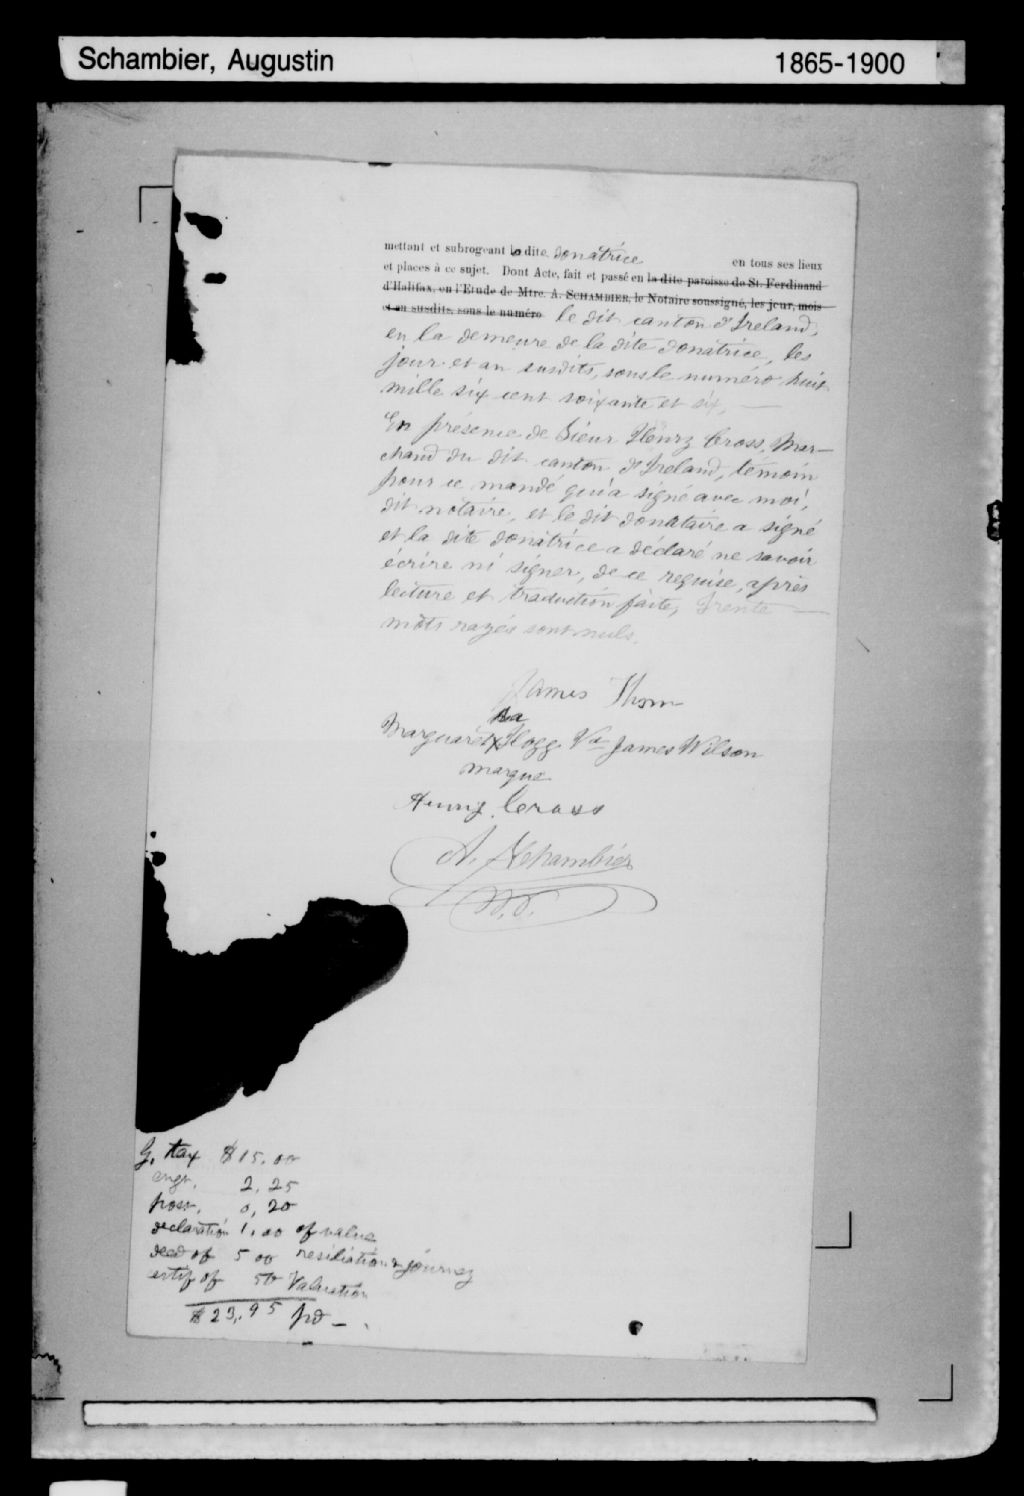 Schambier, Augustin 1865-1900
mettant et subrogeant la dite donatrice en tous ses lieux
et places à ce sujet. Dont Acte, fait et passé en la dite paroisse de St. Ferdinand
d'Halifax, en l'Etude de Mtre. A. SCHAMBIER, le Notaire soussigné, les jour, mois
et an susdits, sous le numéro le dit canton d'Ireland,
en la demeure de la dite donatrice, les
jour et an susdits, sous le numéro huit
mille six cent soixante et six, —
En présence de Sieur Henry Cross, Mar-
chand du dit canton d'Ireland, témoin
pour ce mandé qui a signé avec moi,
dit notaire, et le dit donataire a signé
et la dite donatrice a déclaré ne savoir
écrire ni signer, de ce requise, après
lecture et traduction faite, trente —
mots rayés sont nuls.
James Thom
sa
Marguaret x Hogg Ve James Wilson
marque
Henry Cross
A. Schambier
N.P.
G. tax $15.00
engr. 2,25
post. 0,20
declaration 1,00 of value
deed of 5 00 resiliation & journey
certif of 50 Valuation
$23,95 pd —